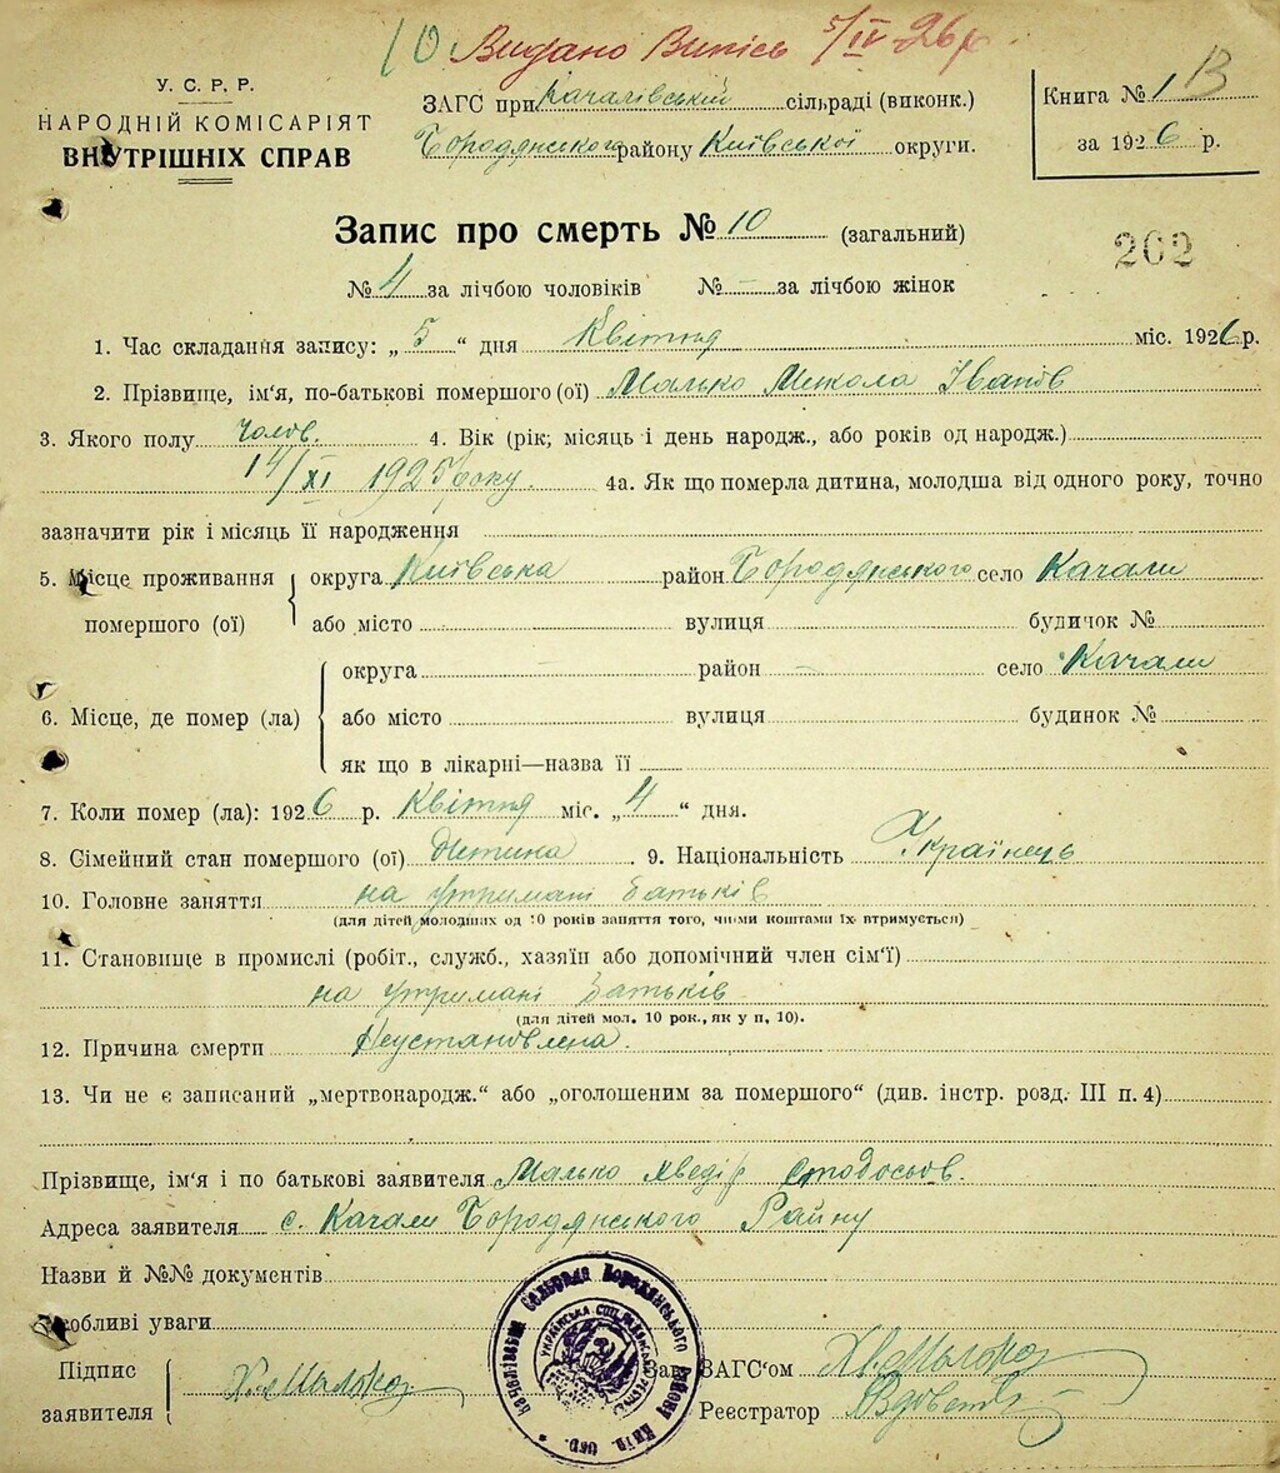 10 Видано Випісь 5/IV-26р.
У. С. Р. Р.
НАРОДНІЙ КОМІСАРІЯТ
ВНУТРІШНІХ СПРАВ
ЗАГС при Качалівській сільраді (виконк.)
Бородянського району Київської округи.
Книга № 1 В
за 1926 р.
Запис про смерть № 10 (загальний)
262
№ 4 за лічбою чоловіків № – за лічбою жінок
1. Час складання запису: „ 5 “ дня Квітня міс. 1926 р.
2. Прізвище, ім'я, по-батькові помершого (ої) Малько Микола Іванів
3. Якого полу Чолов. 4. Вік (рік; місяць і день народж., або років од народж.)
14/XI 1925 року. 4а. Як що померла дитина, молодша від одного року, точно
зазначити рік і місяць її народження
5. Місце проживання округа Київська район Бородянського село Качали
помершого (ої) або місто вулиця будичок №
округа – район – село Качали
6. Місце, де помер (ла) або місто вулиця будинок №
як що в лікарні—назва її
7. Коли помер (ла): 1926 р. Квітня міс. „ 4 “ дня.
8. Сімейний стан помершого (ої) Дитина 9. Національність Українець
10. Головне заняття на утримані батьків
(для дітей молодших од 10 років заняття того, чиїми коштами їх втримується)
11. Становище в промислі (робіт., служб., хазяїн або допомічний член сім'ї)
на утримані батьків
(для дітей мол. 10 рок., як у п. 10).
12. Причина смерти Неустановлена.
13. Чи не є записаний „мертвонародж.“ або „оголошеним за помершого“ (див. інстр. розд. III п. 4)
Прізвище, ім'я і по батькові заявителя Малько Хведір Стодосьов.
Адреса заявителя с. Качали Бородянського Району
Назви й №№ документів
Особливі уваги
Підпис
заявителя
Зав. ЗАГС'ом
Реєстратор
Качалівська Сельрада Бородянського Району Київ. окр.